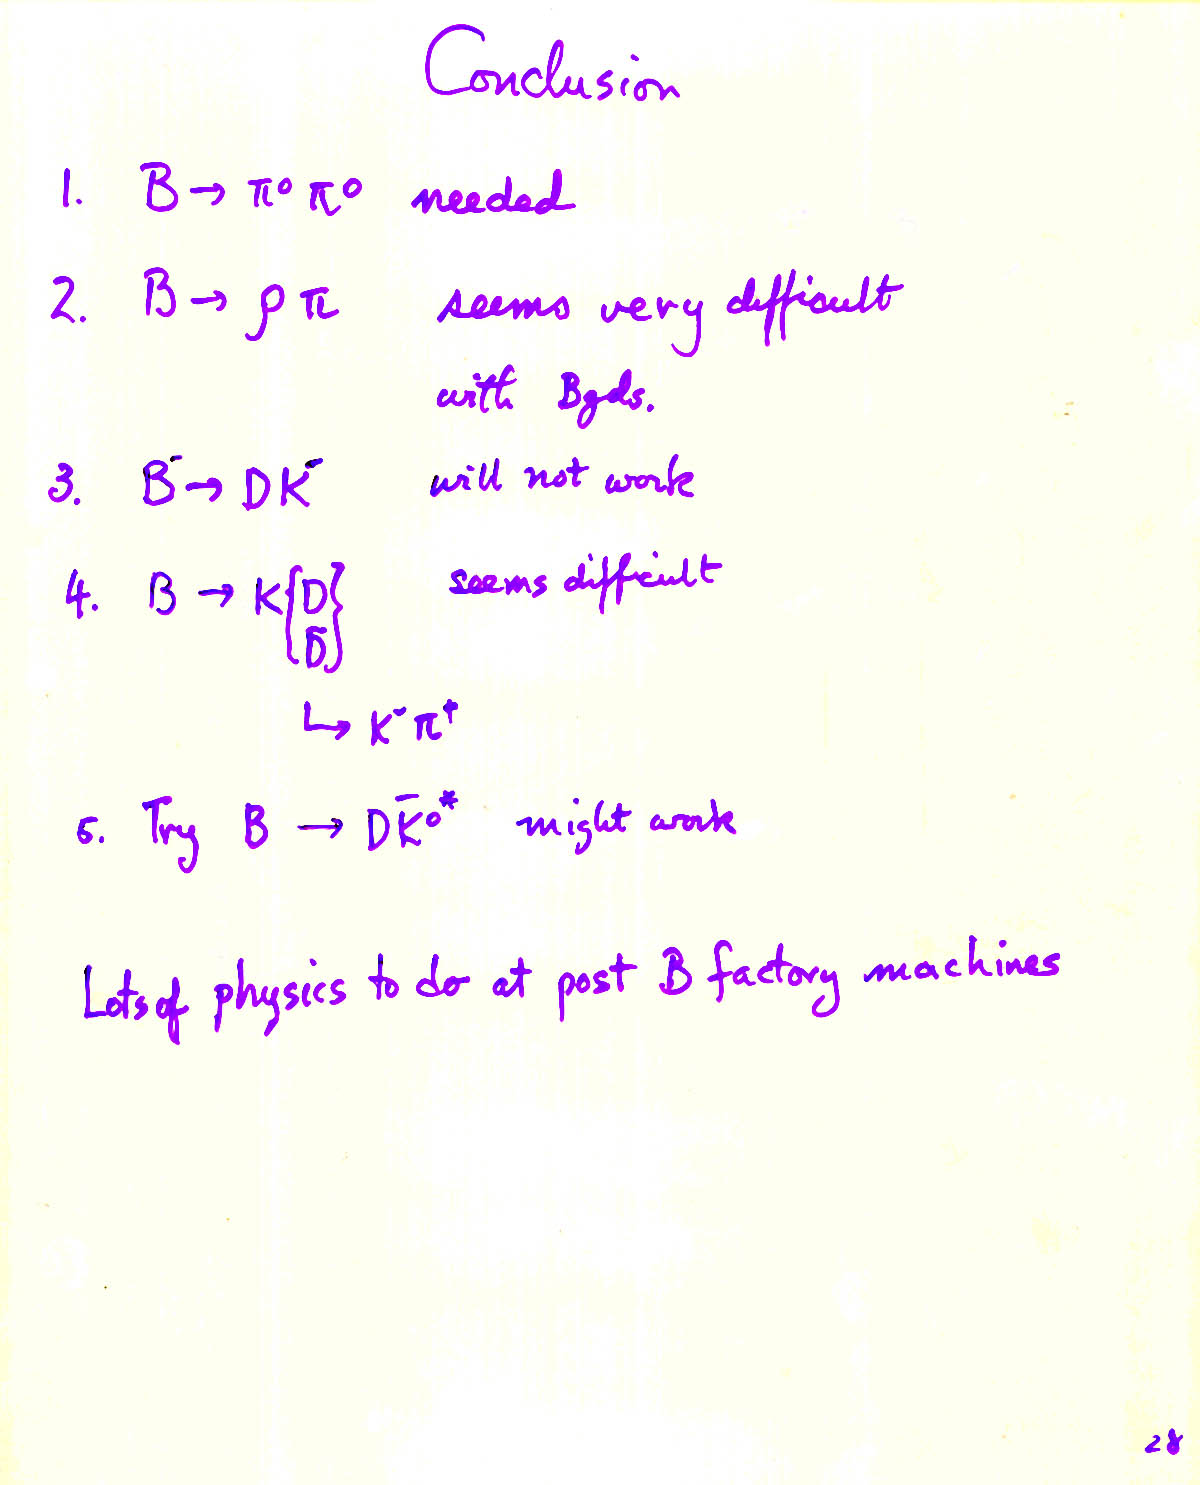 Conclusion
1. B → π⁰ π⁰ needed
2. B → ρ π seems very difficult
with Bgds.
3. B⁻ → D K⁻ will not work
4. B → K { D } seems difficult
D̄
↳ K⁻ π⁺
5. Try B → D K̄⁰* might work
Lots of physics to do at post B factory machines
28